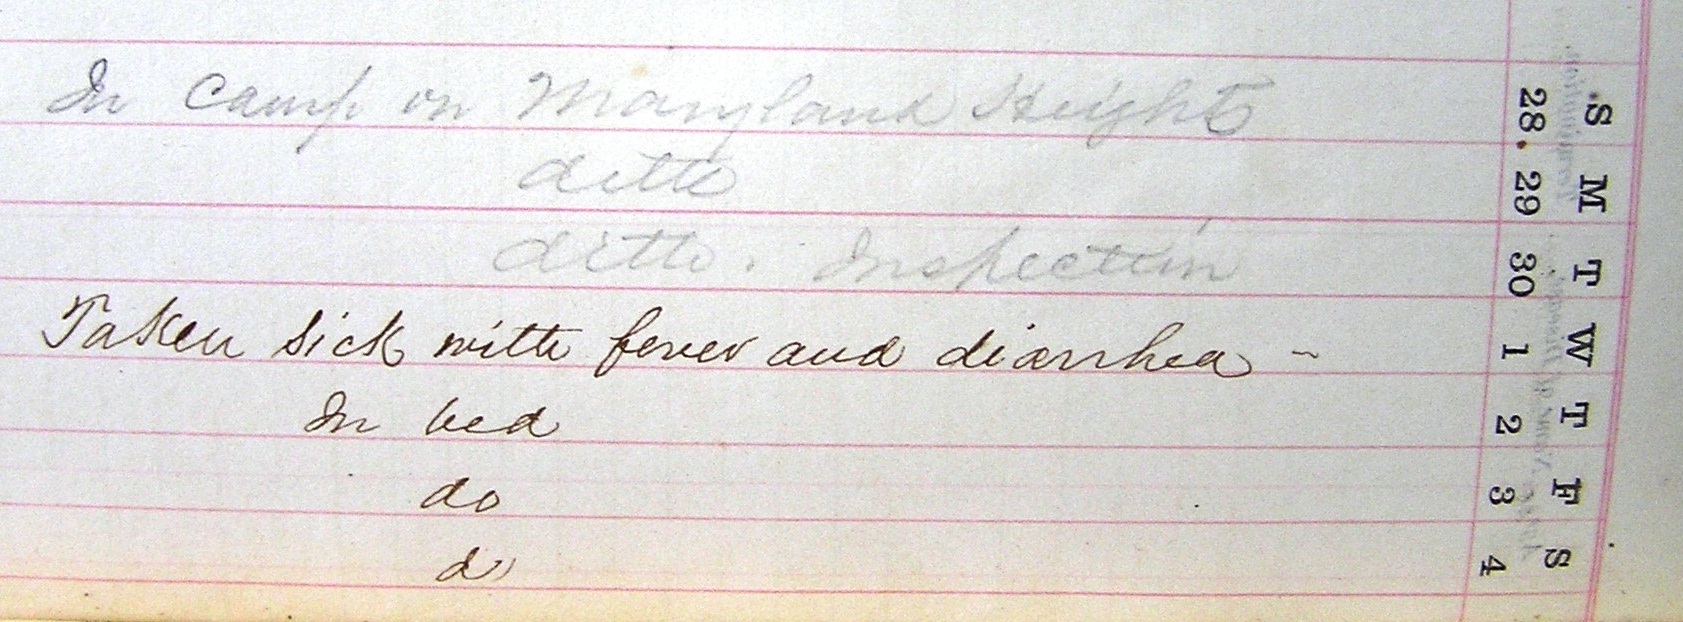 In Camp on Maryland Heights S 28.
ditto M 29
ditto. Inspection T 30
Taken sick with fever and diarrhea - W 1
In bed T 2
do F 3
do S 4